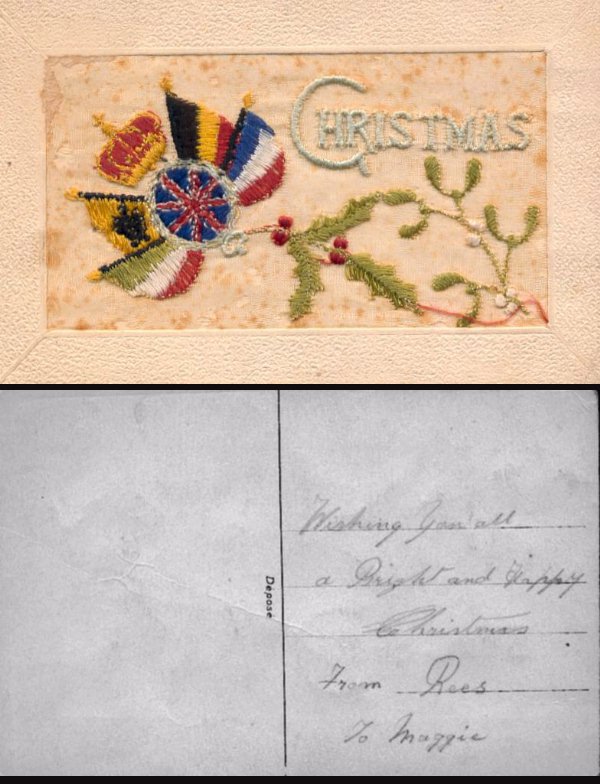 CHRISTMAS
Déposé
Wishing you all
a Bright and Happy
Christmas
From Rees
To Maggie